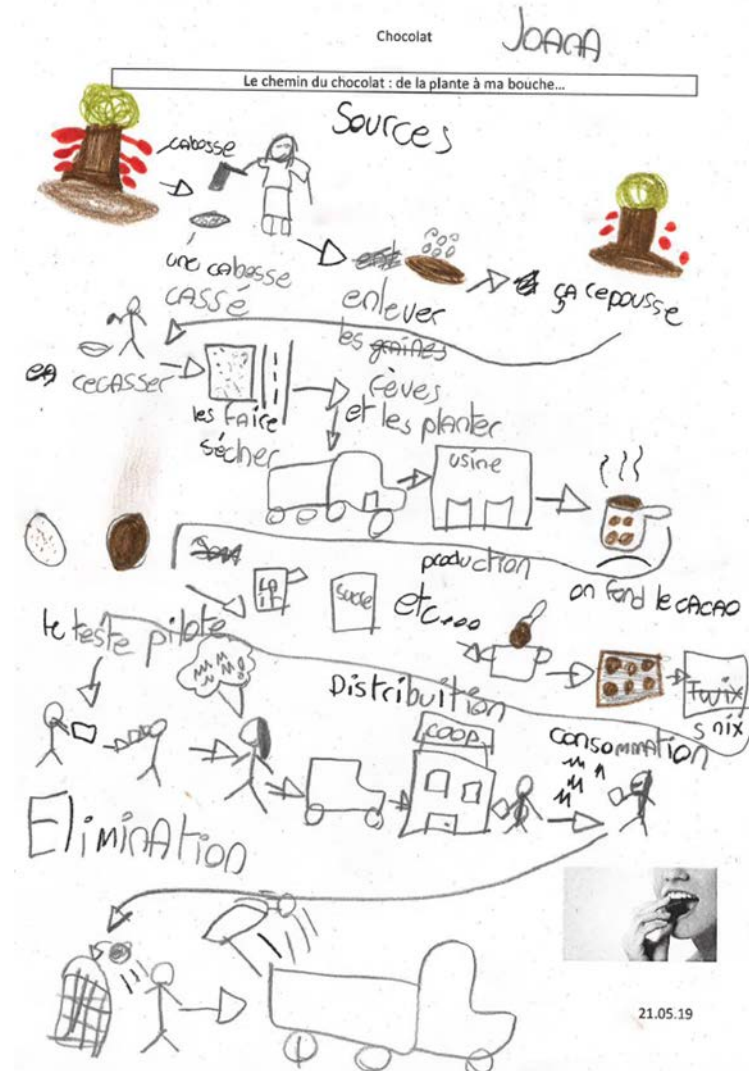 Chocolat
JOANA
Le chemin du chocolat : de la plante à ma bouche...
Sources
cabosse
une cabosse
CASSÉ
enlever
les graines
fèves
et les planter
ça repousse
recasser
les faire
sécher
usine
production
on fond le cacao
LA
IT
sucre
etc....
le teste pilote
Twix
snix
Distribuition
COOP
consommation
Elimination
21.05.19